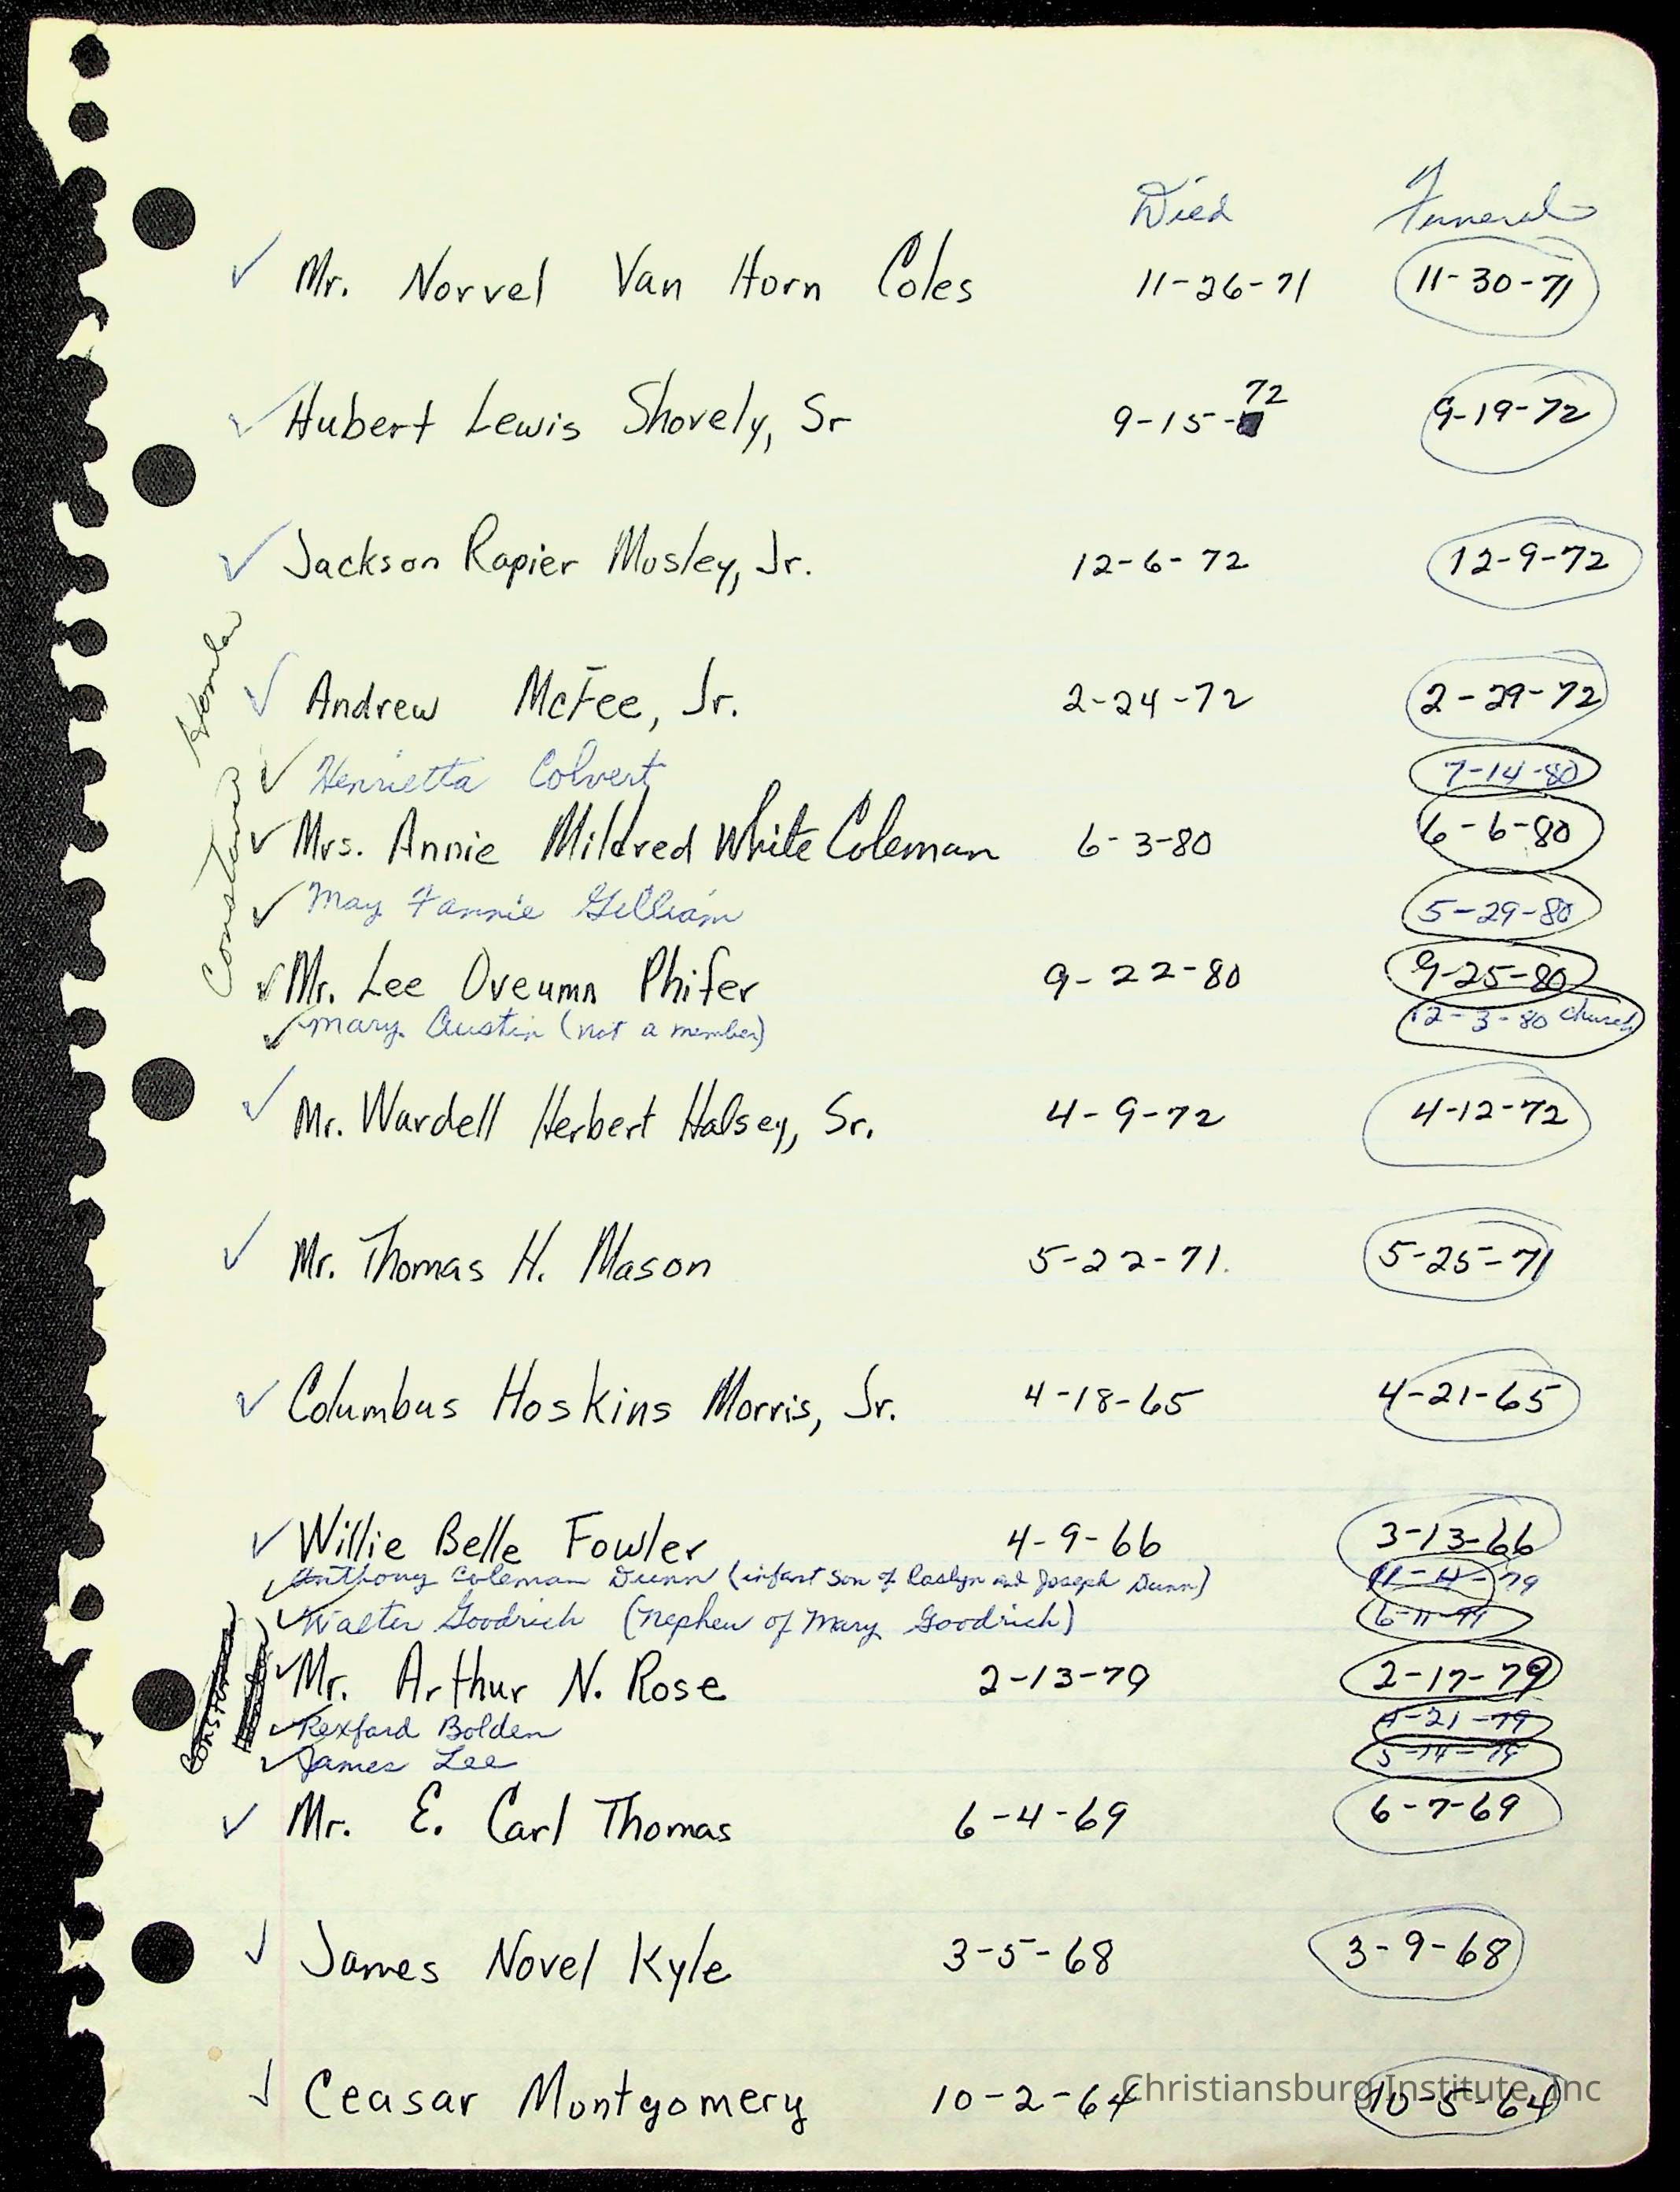 Died Funeral
✓ Mr. Norvel Van Horn Coles 11-26-71 11-30-71
✓ Hubert Lewis Shovely, Sr 9-15-72 9-19-72
✓ Jackson Rapier Mosley, Jr. 12-6-72 12-9-72
✓ Andrew McFee, Jr. 2-24-72 2-29-72
✓ Henrietta Colvert 7-14-80
✓ Mrs. Annie Mildred White Coleman 6-3-80 6-6-80
✓ May Fannie Gilliam 5-29-80
✓ Mr. Lee Oveumn Phifer 9-22-80 9-25-80
✓ Mary Austin (not a member) 12-3-80 church
✓ Mr. Wardell Herbert Halsey, Sr. 4-9-72 4-12-72
✓ Mr. Thomas H. Mason 5-22-71. 5-25-71
✓ Columbus Hoskins Morris, Jr. 4-18-65 4-21-65
✓ Willie Belle Fowler 4-9-66 3-13-66
✓ Anthony Coleman Dunn (infant son of Roslyn and Joseph Dunn) 11-4-79
✓ Walter Goodrich (Nephew of Mary Goodrich) 6-11-79
✓ Mr. Arthur N. Rose 2-13-79 2-17-79
✓ Rexford Bolden 4-21-79
✓ James Lee 5-14-79
✓ Mr. E. Carl Thomas 6-4-69 6-7-69
✓ James Novel Kyle 3-5-68 3-9-68
✓ Ceasar Montgomery 10-2-64 10-5-64
Christiansburg Institute, Inc